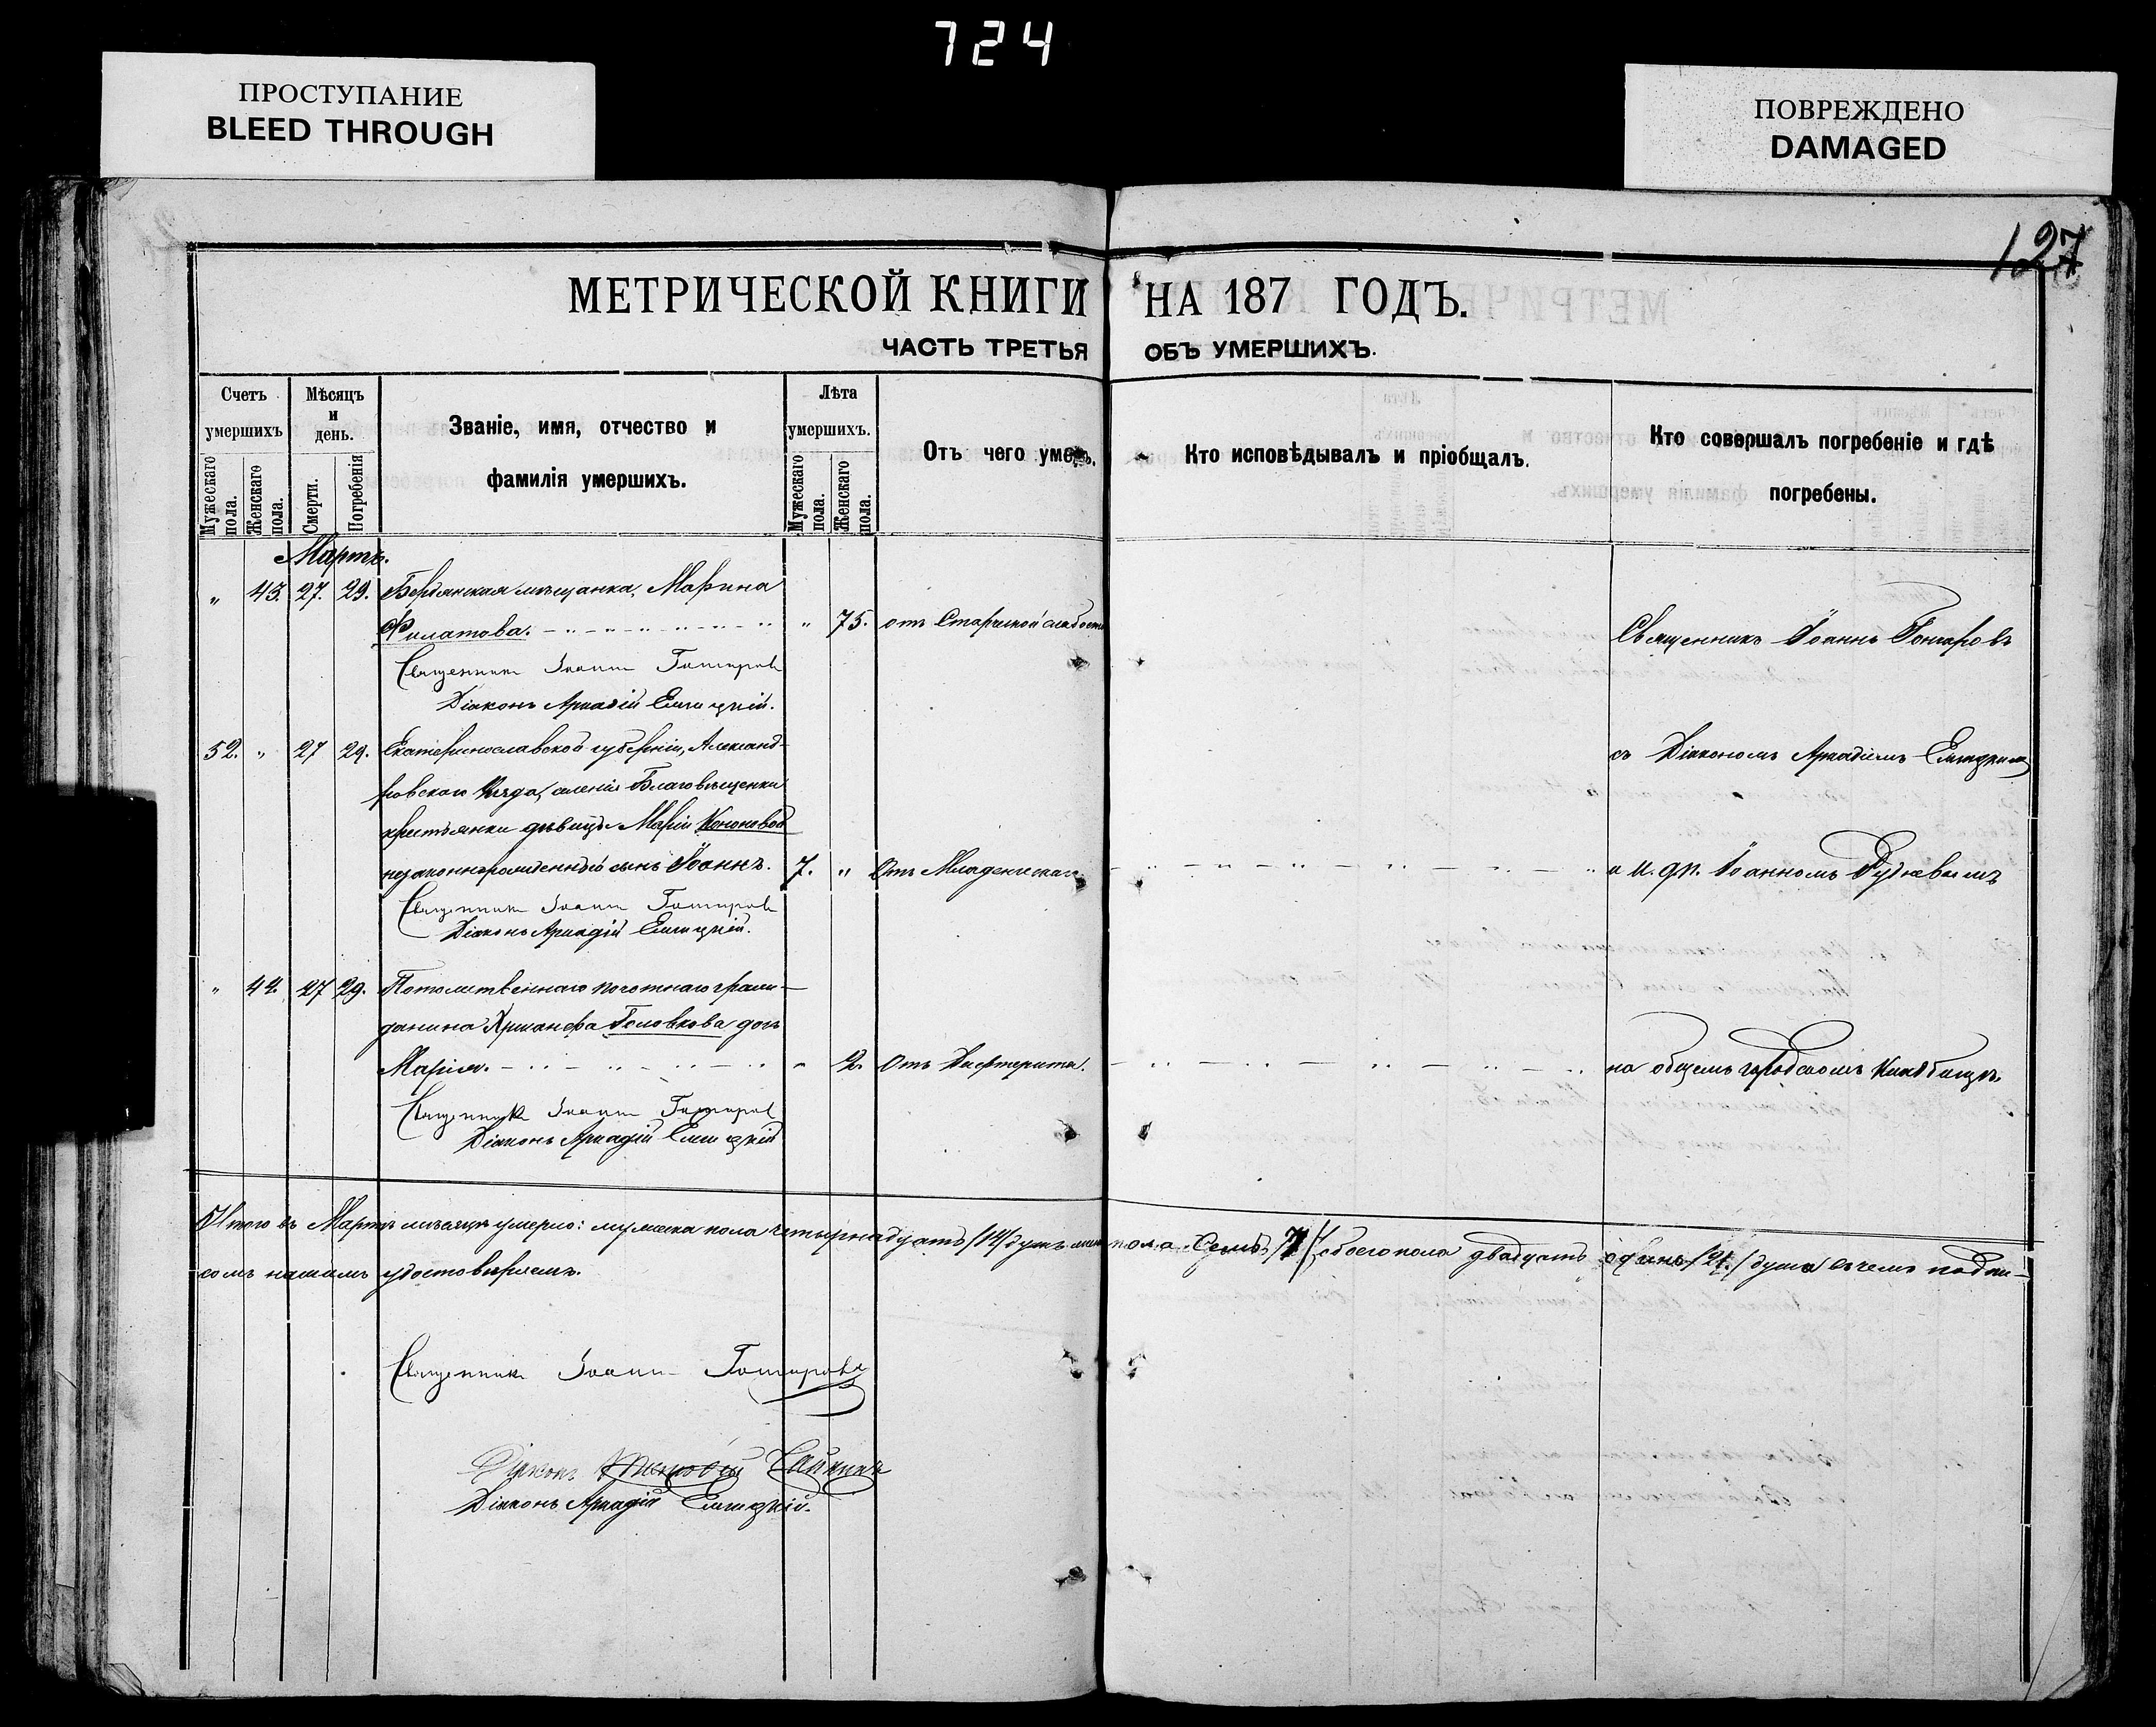 724
ПРОСТУПАНИЕ
BLEED THROUGH
ПОВРЕЖДЕНО
DAMAGED
127
МЕТРИЧЕСКОЙ КНИГИ НА 187 ГОДЪ.
ЧАСТЬ ТРЕТЬЯ ОБЪ УМЕРШИХЪ.
Счетъ умершихъ
Мужескаго пола.
Женскаго пола.
Мѣсяцъ и день.
Смерти.
Погребенія
Званіе, имя, отчество и фамилія умершихъ.
Лѣта умершихъ.
Мужескаго пола.
Женскаго пола.
Отъ чего умеръ.
Кто исповѣдывалъ и пріобщалъ.
Кто совершалъ погребеніе и гдѣ погребены.
Мартъ.
" 43. 27. 29. Бердянская мѣщанка, Марина
Филатова. " 75. отъ Старческой слабости
Священникъ Іоаннъ Гончаровъ
Священникъ Іоаннъ Гончаров
Діаконъ Аркадій
52. " 27 29. Екатеринославской губерніи, Александ-
съ Діакономъ Аркадіемъ
ровскаго уѣзда, селенія Благовѣщенки
крестьянки дѣвицы Маріи Кононовой
незаконнорожденный сынъ Іоаннъ. 7. " Отъ Младенческаго и и. дп. Іоанномъ
Священникъ Іоанн Гончаров
Діаконъ Аркадій
" 44. 27 29. Потомственнаго почотнаго граж-
данина Головкова доч
Марія. " 2. Отъ Дифтерита. на общемъ городскомъ кладбищѣ.
Священникъ Іоанн Гончаров
Діаконъ Аркадій
Итого въ Мартѣ мѣсяцѣ умерло: мужеска пола четырнадцать /14/ душъ женс пола Семь /7/ обоего пола двадцать одинъ /21./ душа въ чемъ подпи-
сомъ нашимъ удостовѣряемъ.
Священникъ Іоанн Гончаровъ
Діаконъ
Діаконъ Аркадій